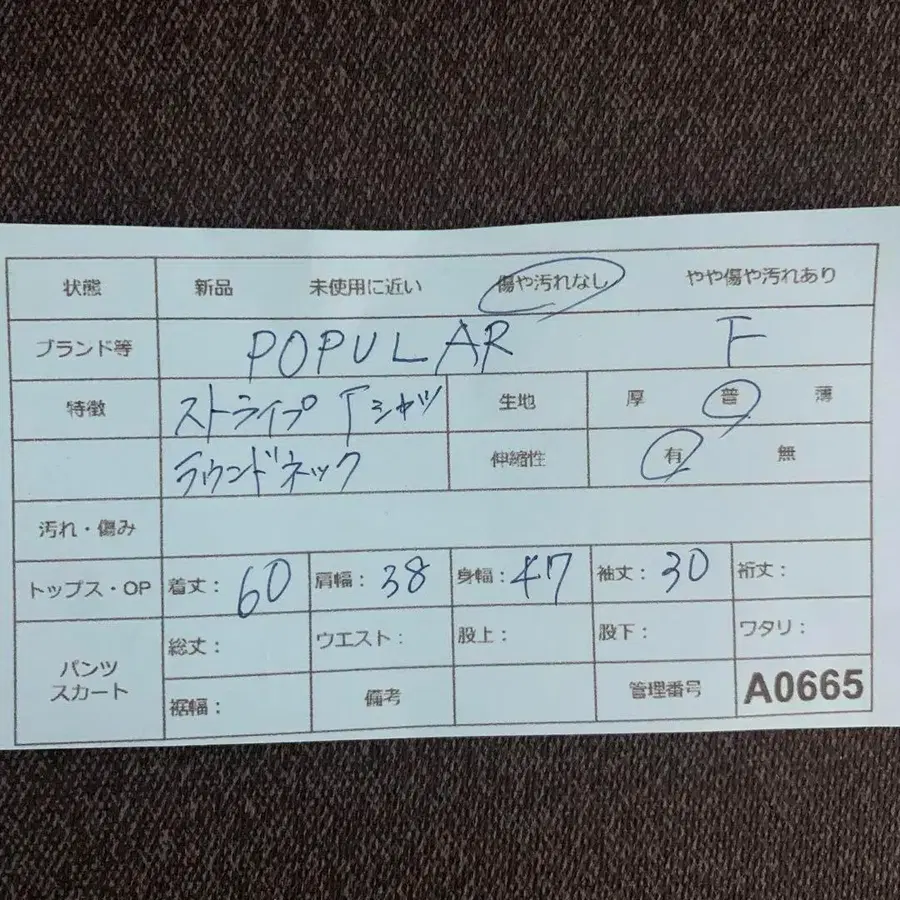 状態 新品 未使用に近い 傷や汚れなし やや傷や汚れあり
ブランド等 POPULAR F
特徴 ストライプTシャツ 生地 厚 普 薄
ラウンドネック 伸縮性 有 無
汚れ・傷み
トップス・OP 着丈: 60 肩幅: 38 身幅: 47 袖丈: 30 裄丈:
パンツ スカート 総丈: ウエスト: 股上: 股下: ワタリ:
裾幅: 備考 管理番号 A0665